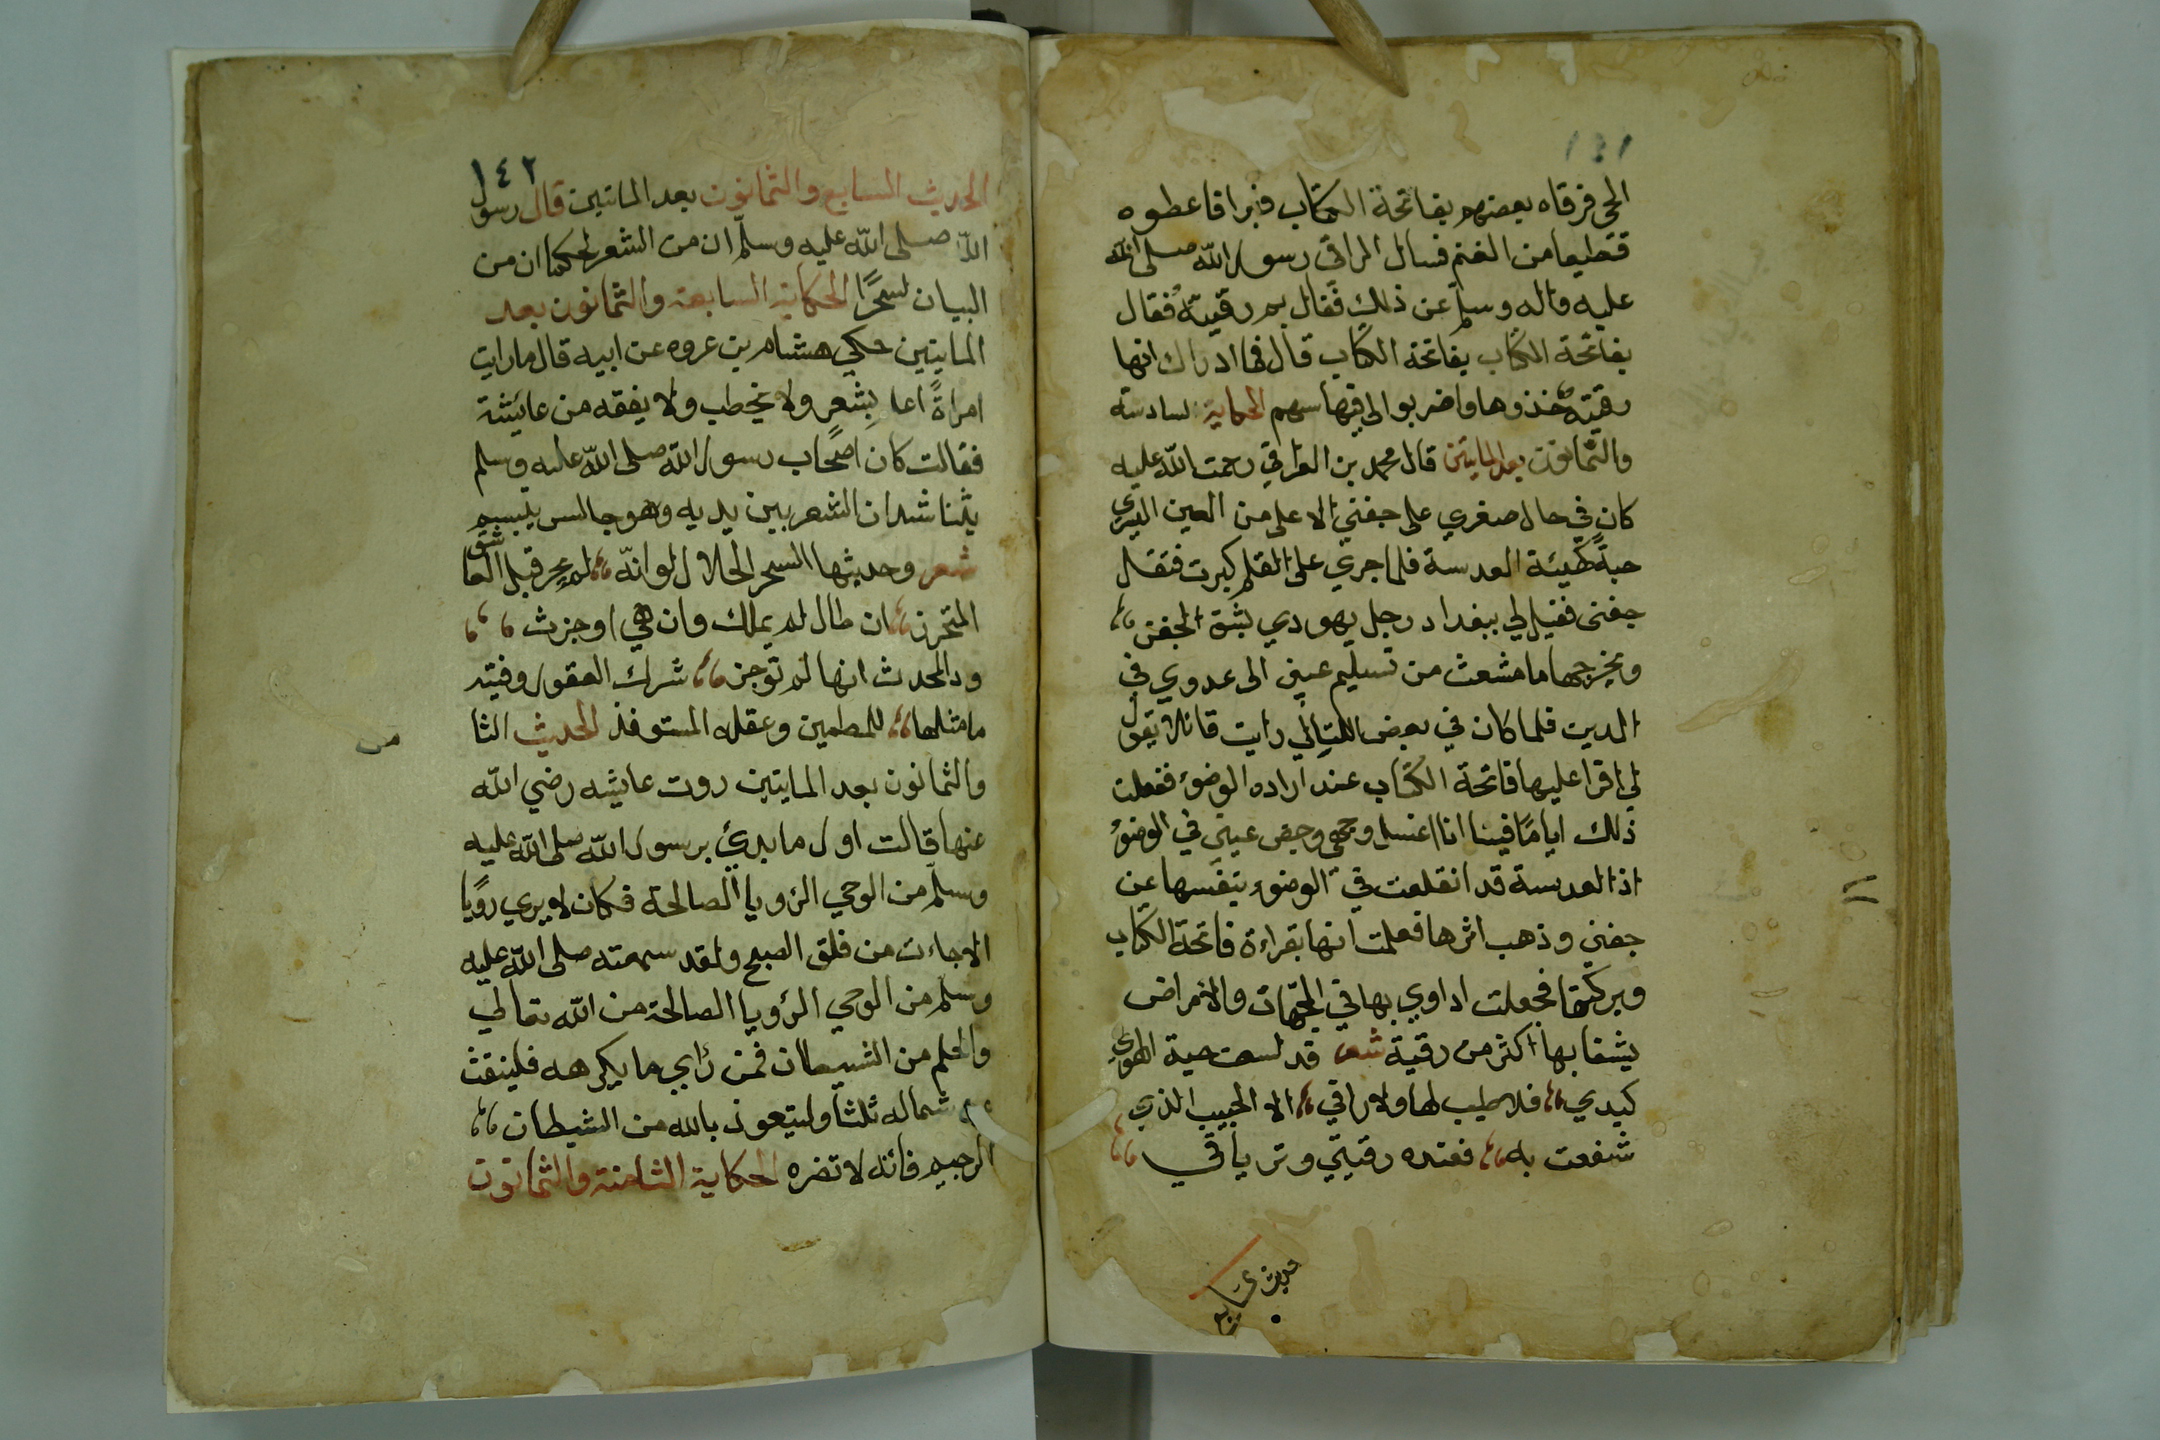 ١٤١
الحي فرقاه بعضهم بفاتحة الكتاب فبرا فاعطوه
قطيعا من الغنم فسال الراقي رسول الله صلى الله
عليه واله وسلم عن ذلك فقال بم رقيته فقال
بفاتحة الكتاب بفاتحة الكتاب قال فما ادراك انها
رقية خذوها واضربوا لي فيها سهم الحكاية السادسة
والثمانون بعد المايتين قال محمد بن العراقي رحمت الله عليه
كان في حال صغري على جفني الاعلى من العين اليسرى
حبة كهيئة العدسة فلما جرى على القلم كبرت فثقل
جفني فقيل لي ببغداد رجل يهودي يشق الجفن
ويخرجها ما مشعث من تسليم عيني الى عدوي في
الدين فلما كان في بعض الليالي رايت قائلا يقول
لي اقرا عليها فاتحة الكتاب عند اراده الوضوء ففعلت
ذلك اياما فبينا انا اغسل وجهي وجفن عيني في الوضوء
اذا العدسة قد انقلعت في الوضوء بنفسها عن
جفني وذهب اثرها فعلمت انها بقراءة فاتحة الكتاب
وبركتها فجعلت اداوي بها في الجهات والامراض
يشفا بها اكثر من رقية شعر قد لسعت حية الهوى
كبدي فلا طبيب لها ولا راقي الا الحبيب الذي
شفعت به فعنده رقيتي وترياقي
١٤٢
الحديث السابع والثمانون بعد الماتين قال رسول
الله صلى الله عليه وسلم ان من الشعر لحكما ان من
البيان لسحرا الحكاية السابعة والثمانون بعد
المايتين حكي هشام بن عروه عن ابيه قال ما رايت
امراة اعلم بشعر ولا بخطب ولا يفقه من عائشة
فقالت كان اصحاب رسول الله صلى الله عليه وسلم
يتناشدان الشعر بين يديه وهو جالس يتبسم
شعر وحديثها السحر الحلال لو انه لم يجر قبل العاشق
المتحرز ان طال لم يملك وان هي اوجزت
ود المحدث انها لم توجز شرك العقول وفتنه
ما مثلها للمطمين وعقله المستوفز الحديث الثا
والثمانون بعد المايتين روت عايشه رضي الله
عنها قالت اول ما بدئ برسول الله صلى الله عليه
وسلم من الوحي الرؤيا الصالحة فكان لا يري رويا
الا جاءت من فلق الصبح ولقد سمعته صلى الله عليه
وسلم من الوحي الرؤيا الصالحة من الله تعالي
والحلم من الشيطان فمن رأي ما يكرهه فلينفث
شماله ثلثا وليتعوذ بالله من الشيطان
الرجيم فانه لا تضره الحكاية الثامنة والثمانون